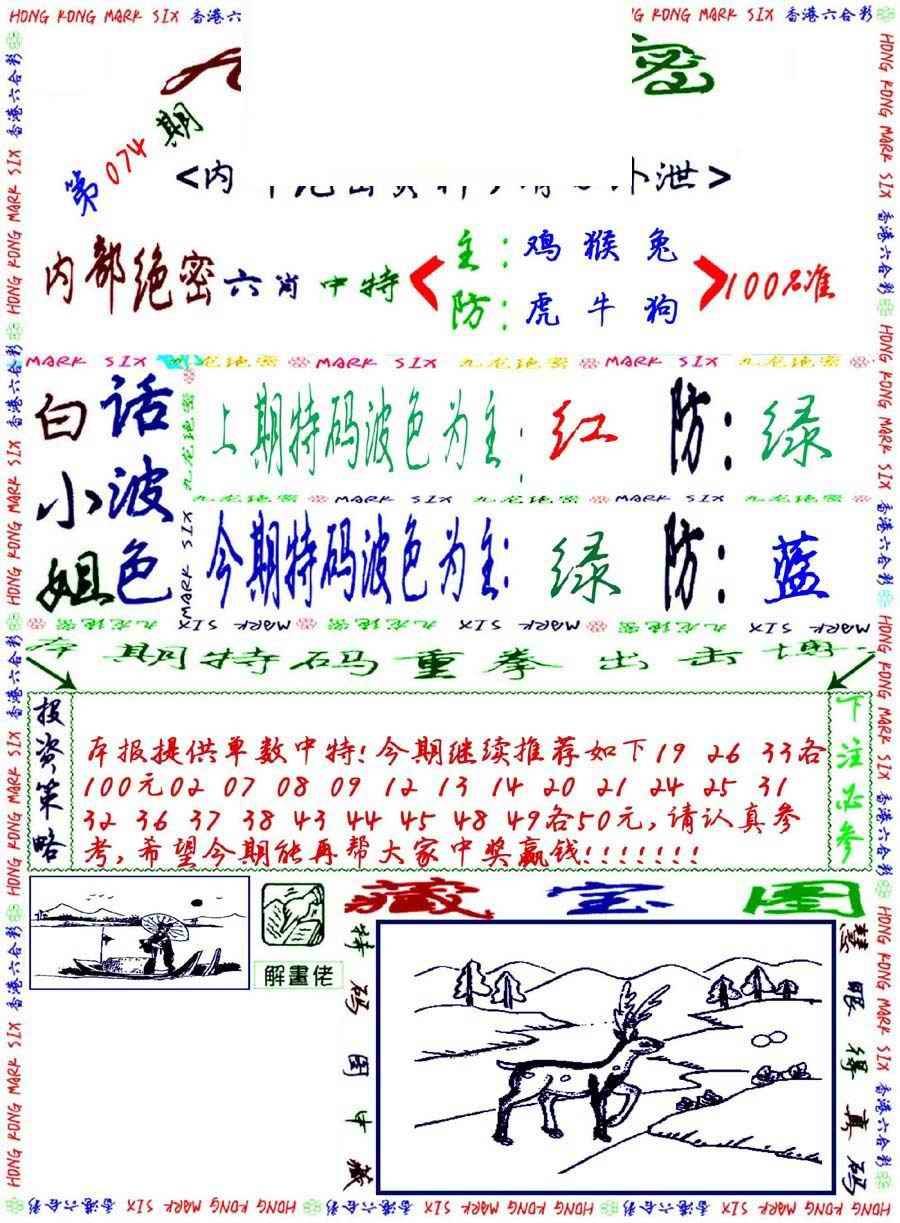 HONG KONG MARK SIX 香港六合彩
密
第074期
<内 外泄>
内部绝密六肖中特
主:鸡猴兔
防:虎牛狗
100%准
MARK SIX 九龙绝密 MARK SIX 九龙绝密 MARK SIX 九龙绝密
白话小波姐色
上期特码波色为主:红 防:绿
九龙绝密 MARK SIX 九龙绝密 MARK SIX 九龙绝密
今期特码波色为主:绿 防:蓝
MARK SIX 九龙绝密 MARK SIX 九龙绝密 MARK SIX
本期特码重拳出击
投资策略
本报提供单数中特!今期继续推荐如下19 26 33各
100元02 07 08 09 12 13 14 20 21 24 25 31
32 36 37 38 43 44 45 48 49各50元,请认真参
考,希望今期能再帮大家中奖赢钱!!!!!!!
下注必参
解畫佬
藏宝图
特码图中藏
慧眼得真码
HONG KONG MARK SIX 香港六合彩